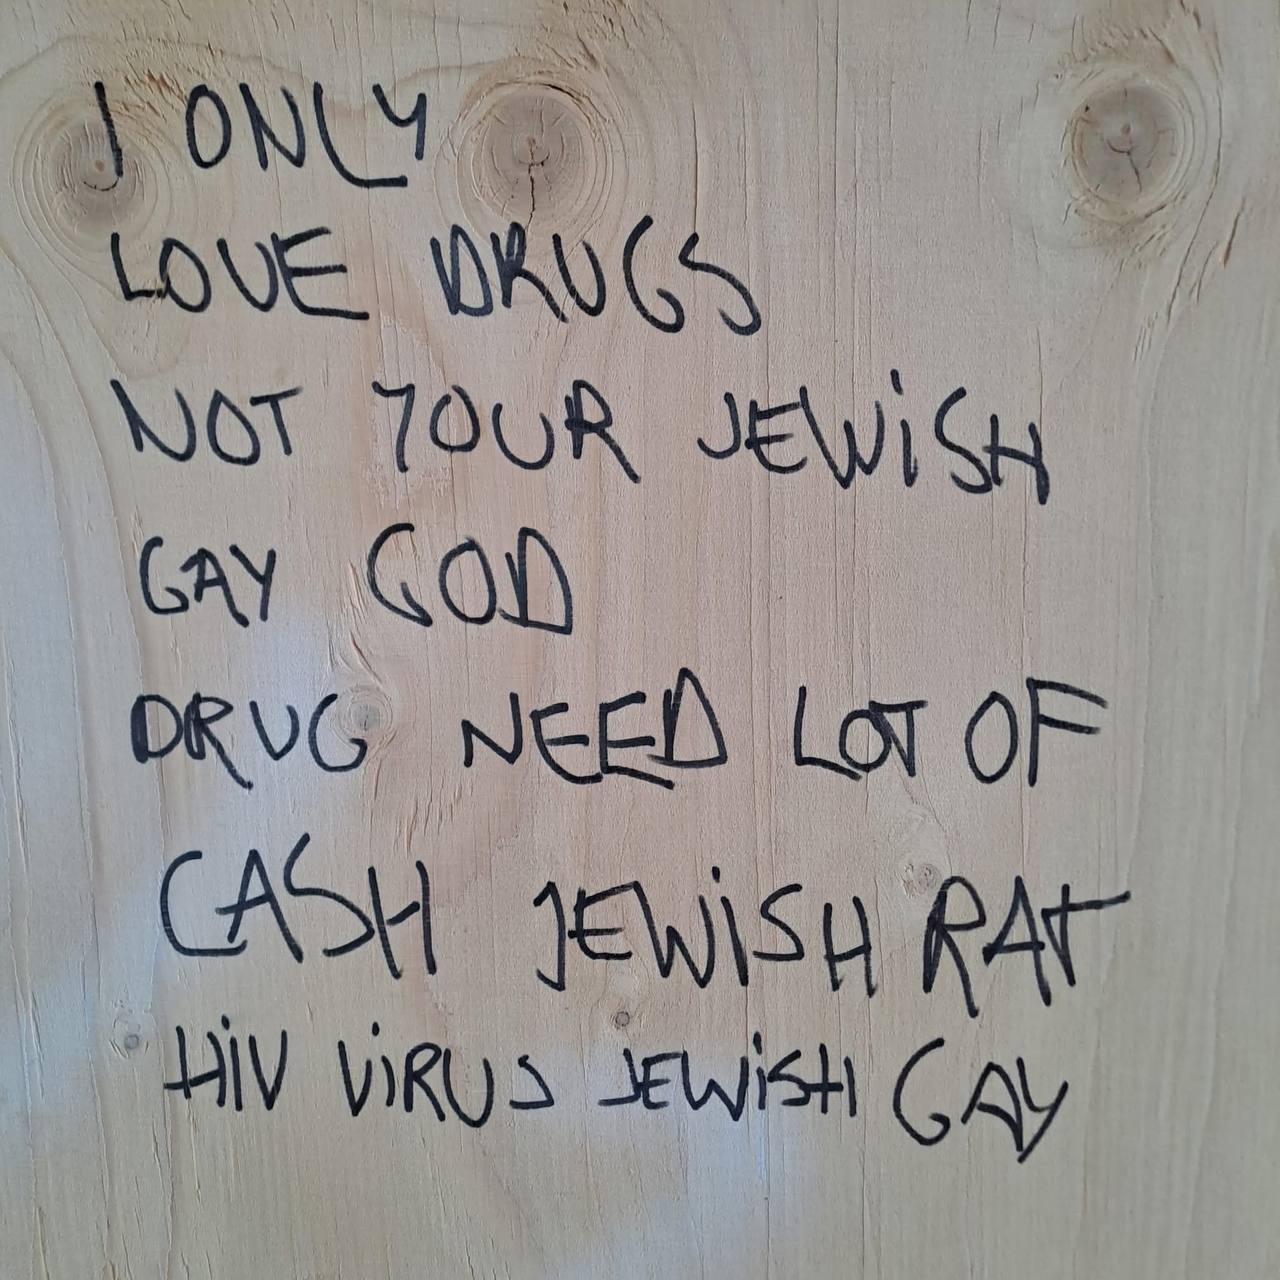 I ONLY
LOVE DRUGS
NOT YOUR JEWiSH
GAY GOD
DRUG NEED LOT OF
CASH JEWiSH RAT
HiV ViRUS JEWiSH GAY